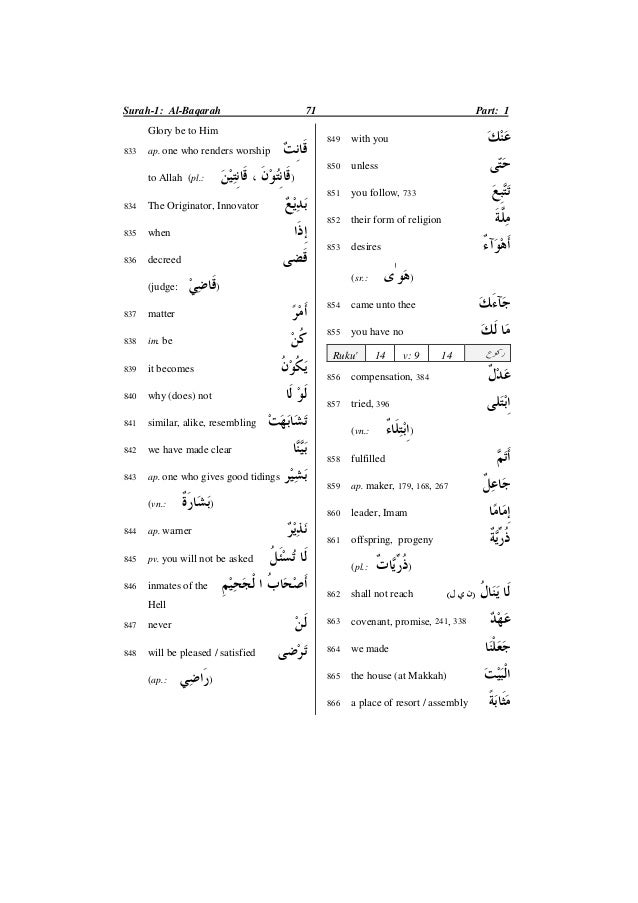 Surah-1: Al-Baqarah 71 Part: 1
Glory be to Him
833 ap. one who renders worship قَانِتٌ
to Allah (pl.: قَانِتُوْنَ ، قَانِتِيْنَ)
834 The Originator, Innovator بَدِيْعُ
835 when إِذَا
836 decreed قَضٰى
(judge: قَاضِيْ)
837 matter أَمْرً
838 im. be كُنْ
839 it becomes يَكُوْنُ
840 why (does) not لَوْ لَا
841 similar, alike, resembling تَشَابَهَتْ
842 we have made clear بَيَّنَّا
843 ap. one who gives good tidings بَشِيْر
(vn.: بَشَارَةٌ)
844 ap. warner نَذِيْرٌ
845 pv. you will not be asked لَا تُسْئَلُ
846 inmates of the أَصْحَابُ ا لْجَحِيْمِ
Hell
847 never لَنْ
848 will be pleased / satisfied تَرْضٰى
(ap.: رَاضِي)
849 with you عَنْكَ
850 unless حَتّٰى
851 you follow, 733 تَتَّبِعَ
852 their form of religion مِلَّةَ
853 desires أَهْوَآءَ
(sr.: هَوٰى)
854 came unto thee جَآءَكَ
855 you have no مَا لَكَ
Ruku' 14 v: 9 14 ركوع
856 compensation, 384 عَدْلٌ
857 tried, 396 ابْتَلٰى
(vn.: اِبْتِلَاءٌ)
858 fulfilled أَتَمَّ
859 ap. maker, 179, 168, 267 جَاعِلٌ
860 leader, Imam إِمَامًا
861 offspring, progeny ذُرِّيَّةٌ
(pl.: ذُرِّيَّاتٌ)
862 shall not reach (ن ي ل) لَا يَنَالُ
863 covenant, promise, 241, 338 عَهْدٌ
864 we made جَعَلْنَا
865 the house (at Makkah) الْبَيْتَ
866 a place of resort / assembly مَثَابَةً